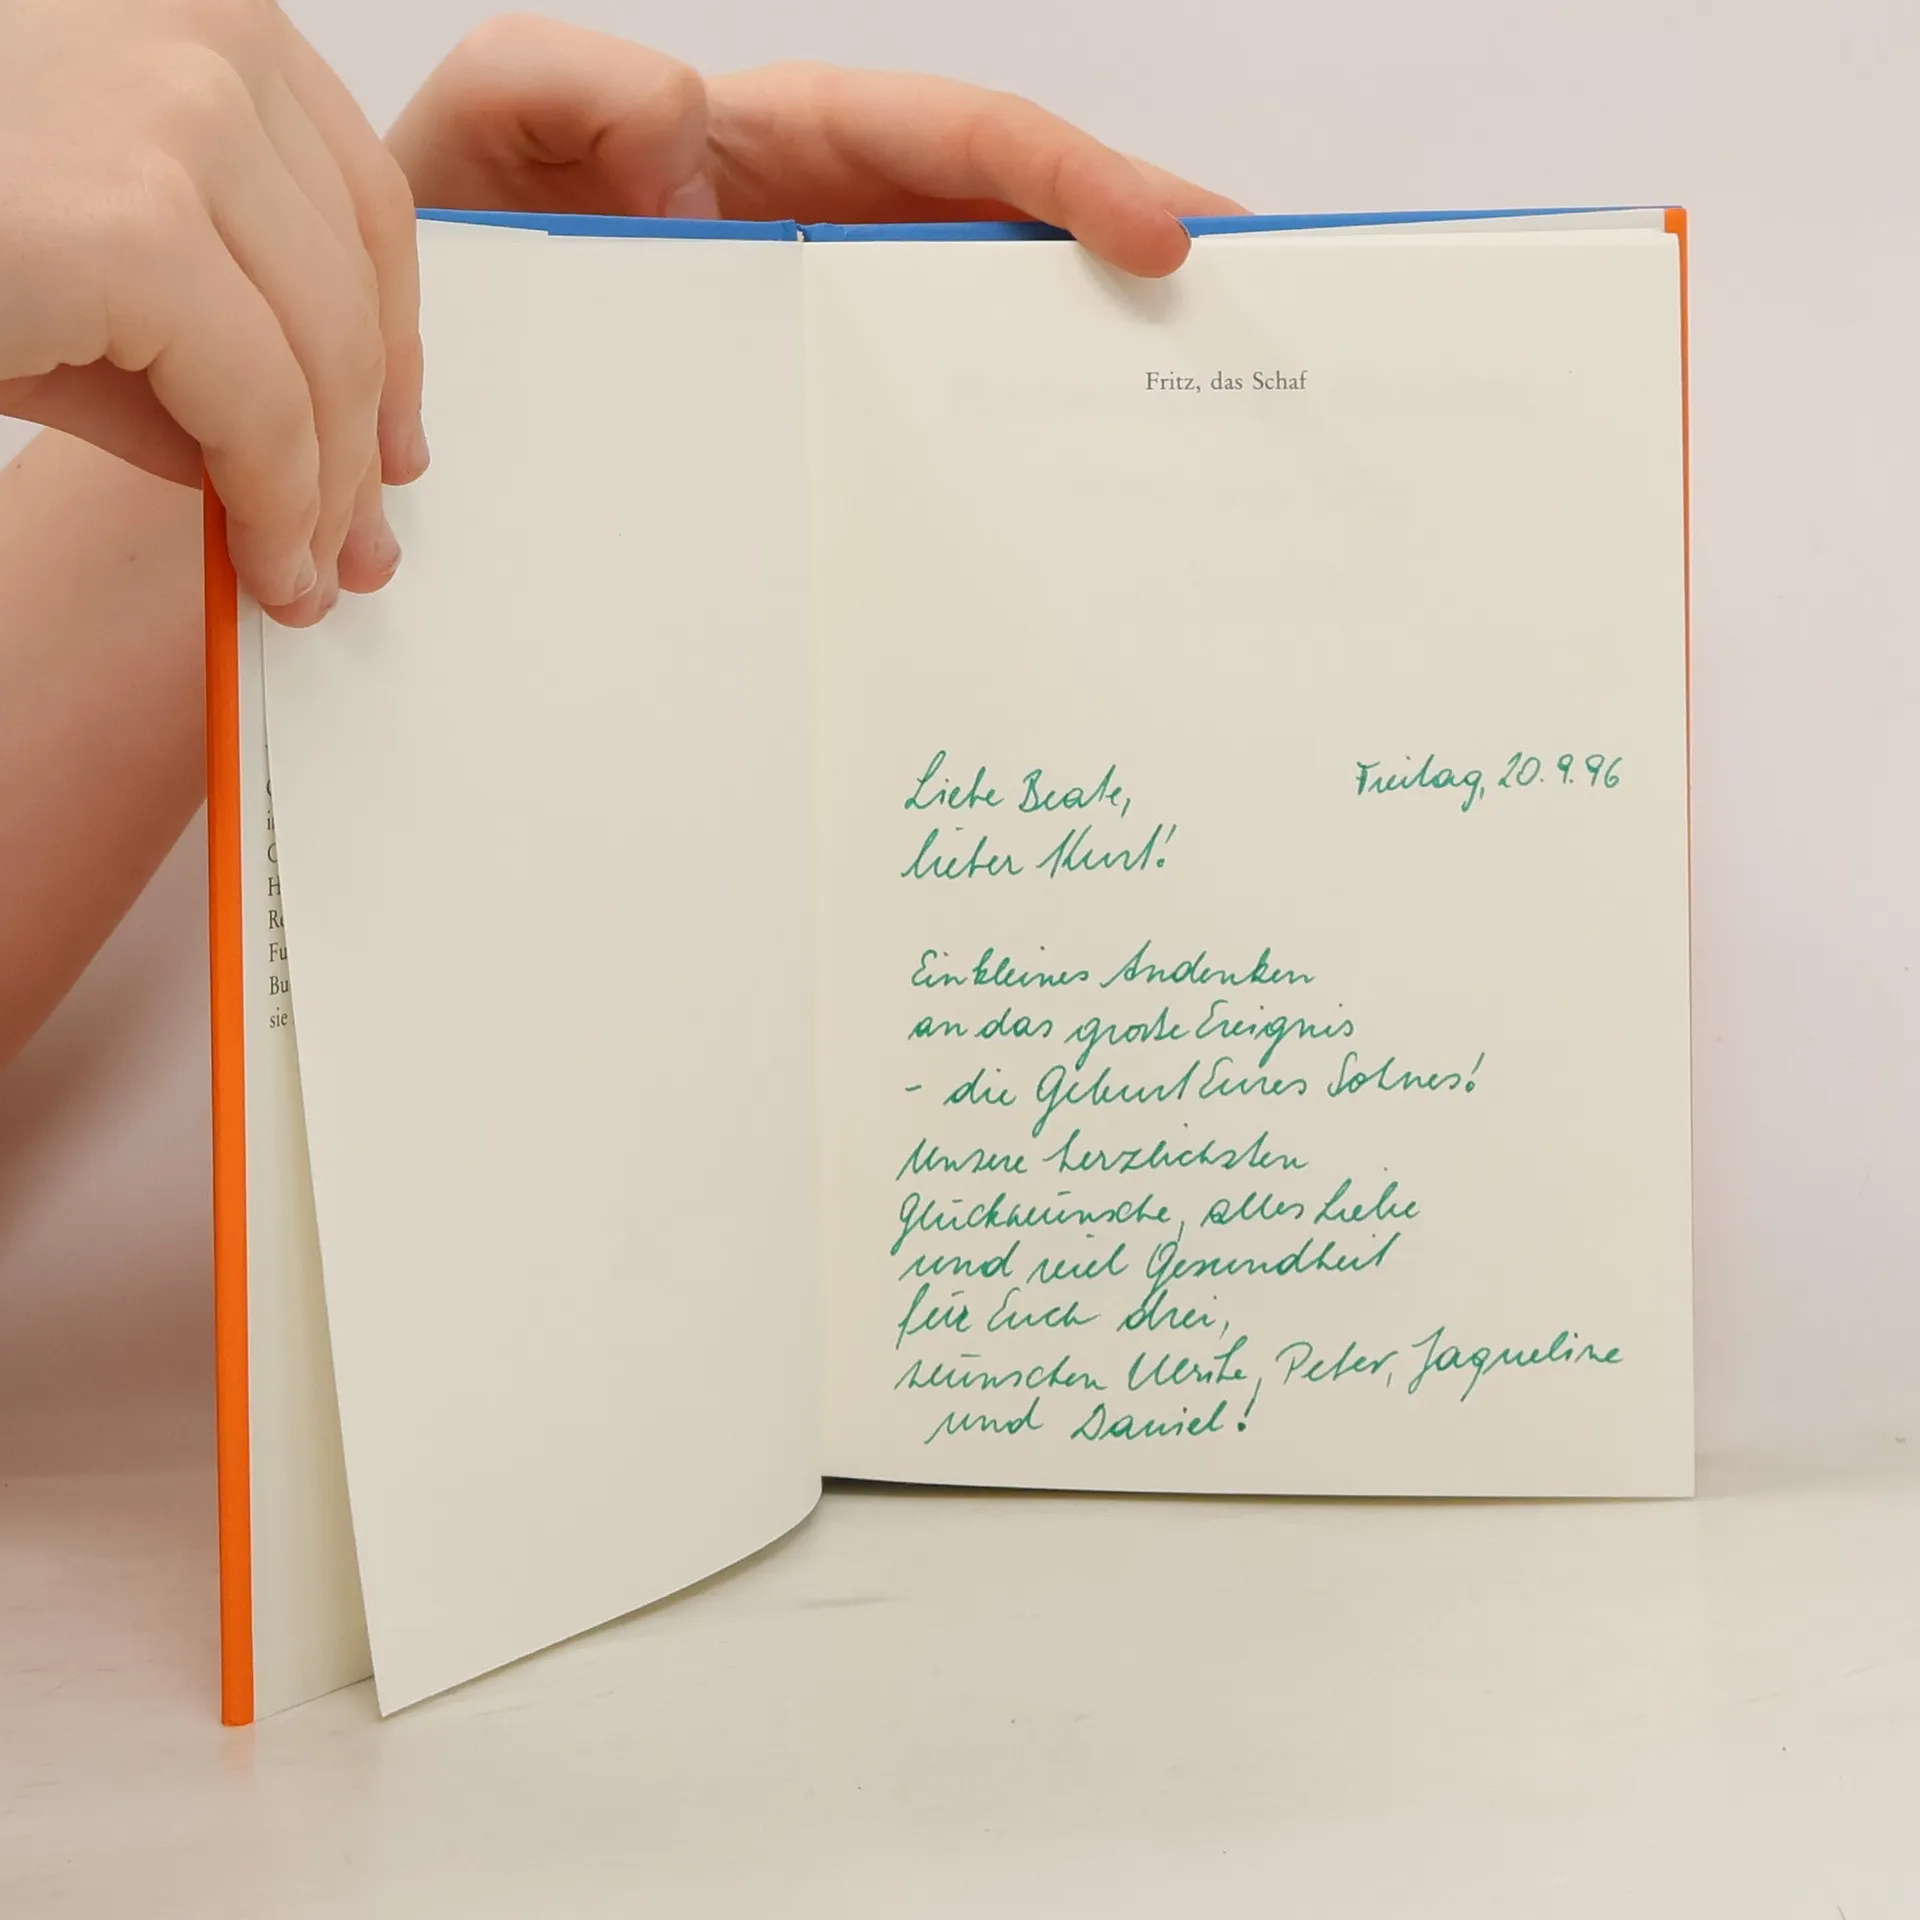 Fritz, das Schaf
Liebe Beate,
Freitag, 20.9.96
lieber Kurt!
Ein kleines Andenken
an das große Ereignis
- die Geburt Eures Sohnes!
Unsere herzlichsten
Glückwünsche, alles Liebe
und viel Gesundheit
für Euch drei,
wünschen Ulrike, Peter, Jaqueline
und Daniel!
Re
Fu
Bu
sie